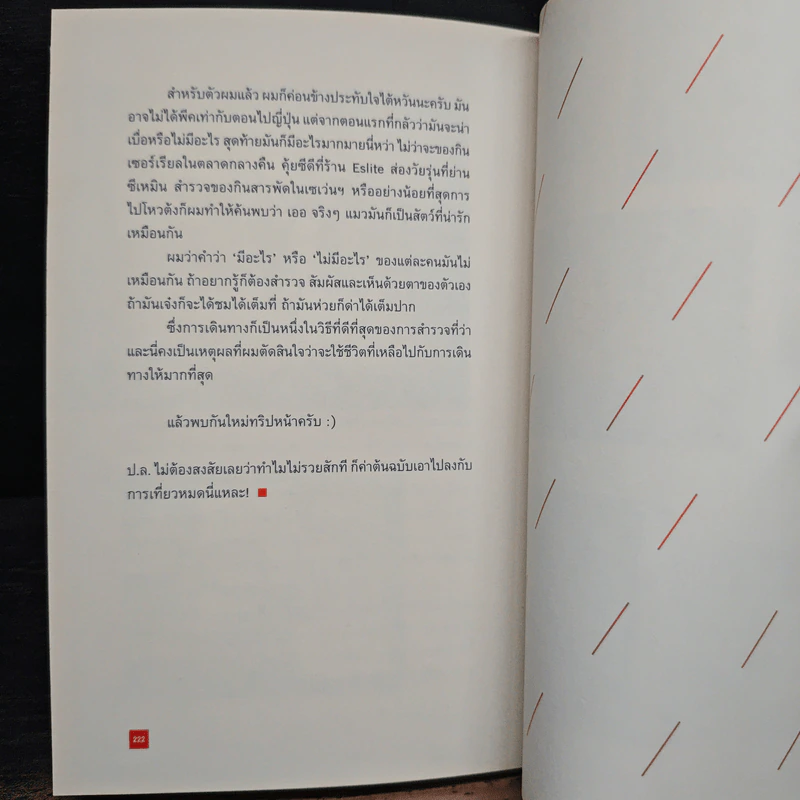 สำหรับตัวผมแล้ว ผมก็ค่อนข้างประทับใจไต้หวันนะครับ มัน
อาจไม่ได้พีคเท่ากับตอนไปญี่ปุ่น แต่จากตอนแรกที่กลัวว่ามันจะน่า
เบื่อหรือไม่มีอะไร สุดท้ายมันก็มีอะไรมากมายนี่หว่า ไม่ว่าจะของกิน
เซอร์เรียลในตลาดกลางคืน คุ้ยซีดีที่ร้าน Eslite ส่องวัยรุ่นที่ย่าน
ซีเหมิน สำรวจของกินสารพัดในเซเว่นฯ หรืออย่างน้อยที่สุดการ
ไปโหวต้งก็ผมทำให้ค้นพบว่า เออ จริงๆ แมวมันก็เป็นสัตว์ที่น่ารัก
เหมือนกัน
ผมว่าคำว่า ‘มีอะไร’ หรือ ‘ไม่มีอะไร’ ของแต่ละคนมันไม่
เหมือนกัน ถ้าอยากรู้ก็ต้องสำรวจ สัมผัสและเห็นด้วยตาของตัวเอง
ถ้ามันเจ๋งก็จะได้ชมได้เต็มที่ ถ้ามันห่วยก็ด่าได้เต็มปาก
ซึ่งการเดินทางก็เป็นหนึ่งในวิธีที่ดีที่สุดของการสำรวจที่ว่า
และนี่คงเป็นเหตุผลที่ผมตัดสินใจว่าจะใช้ชีวิตที่เหลือไปกับการเดิน
ทางให้มากที่สุด
แล้วพบกันใหม่ทริปหน้าครับ :)
ป.ล. ไม่ต้องสงสัยเลยว่าทำไมไม่รวยสักที ก็ค่าต้นฉบับเอาไปลงกับ
การเที่ยวหมดนี่แหละ!
222